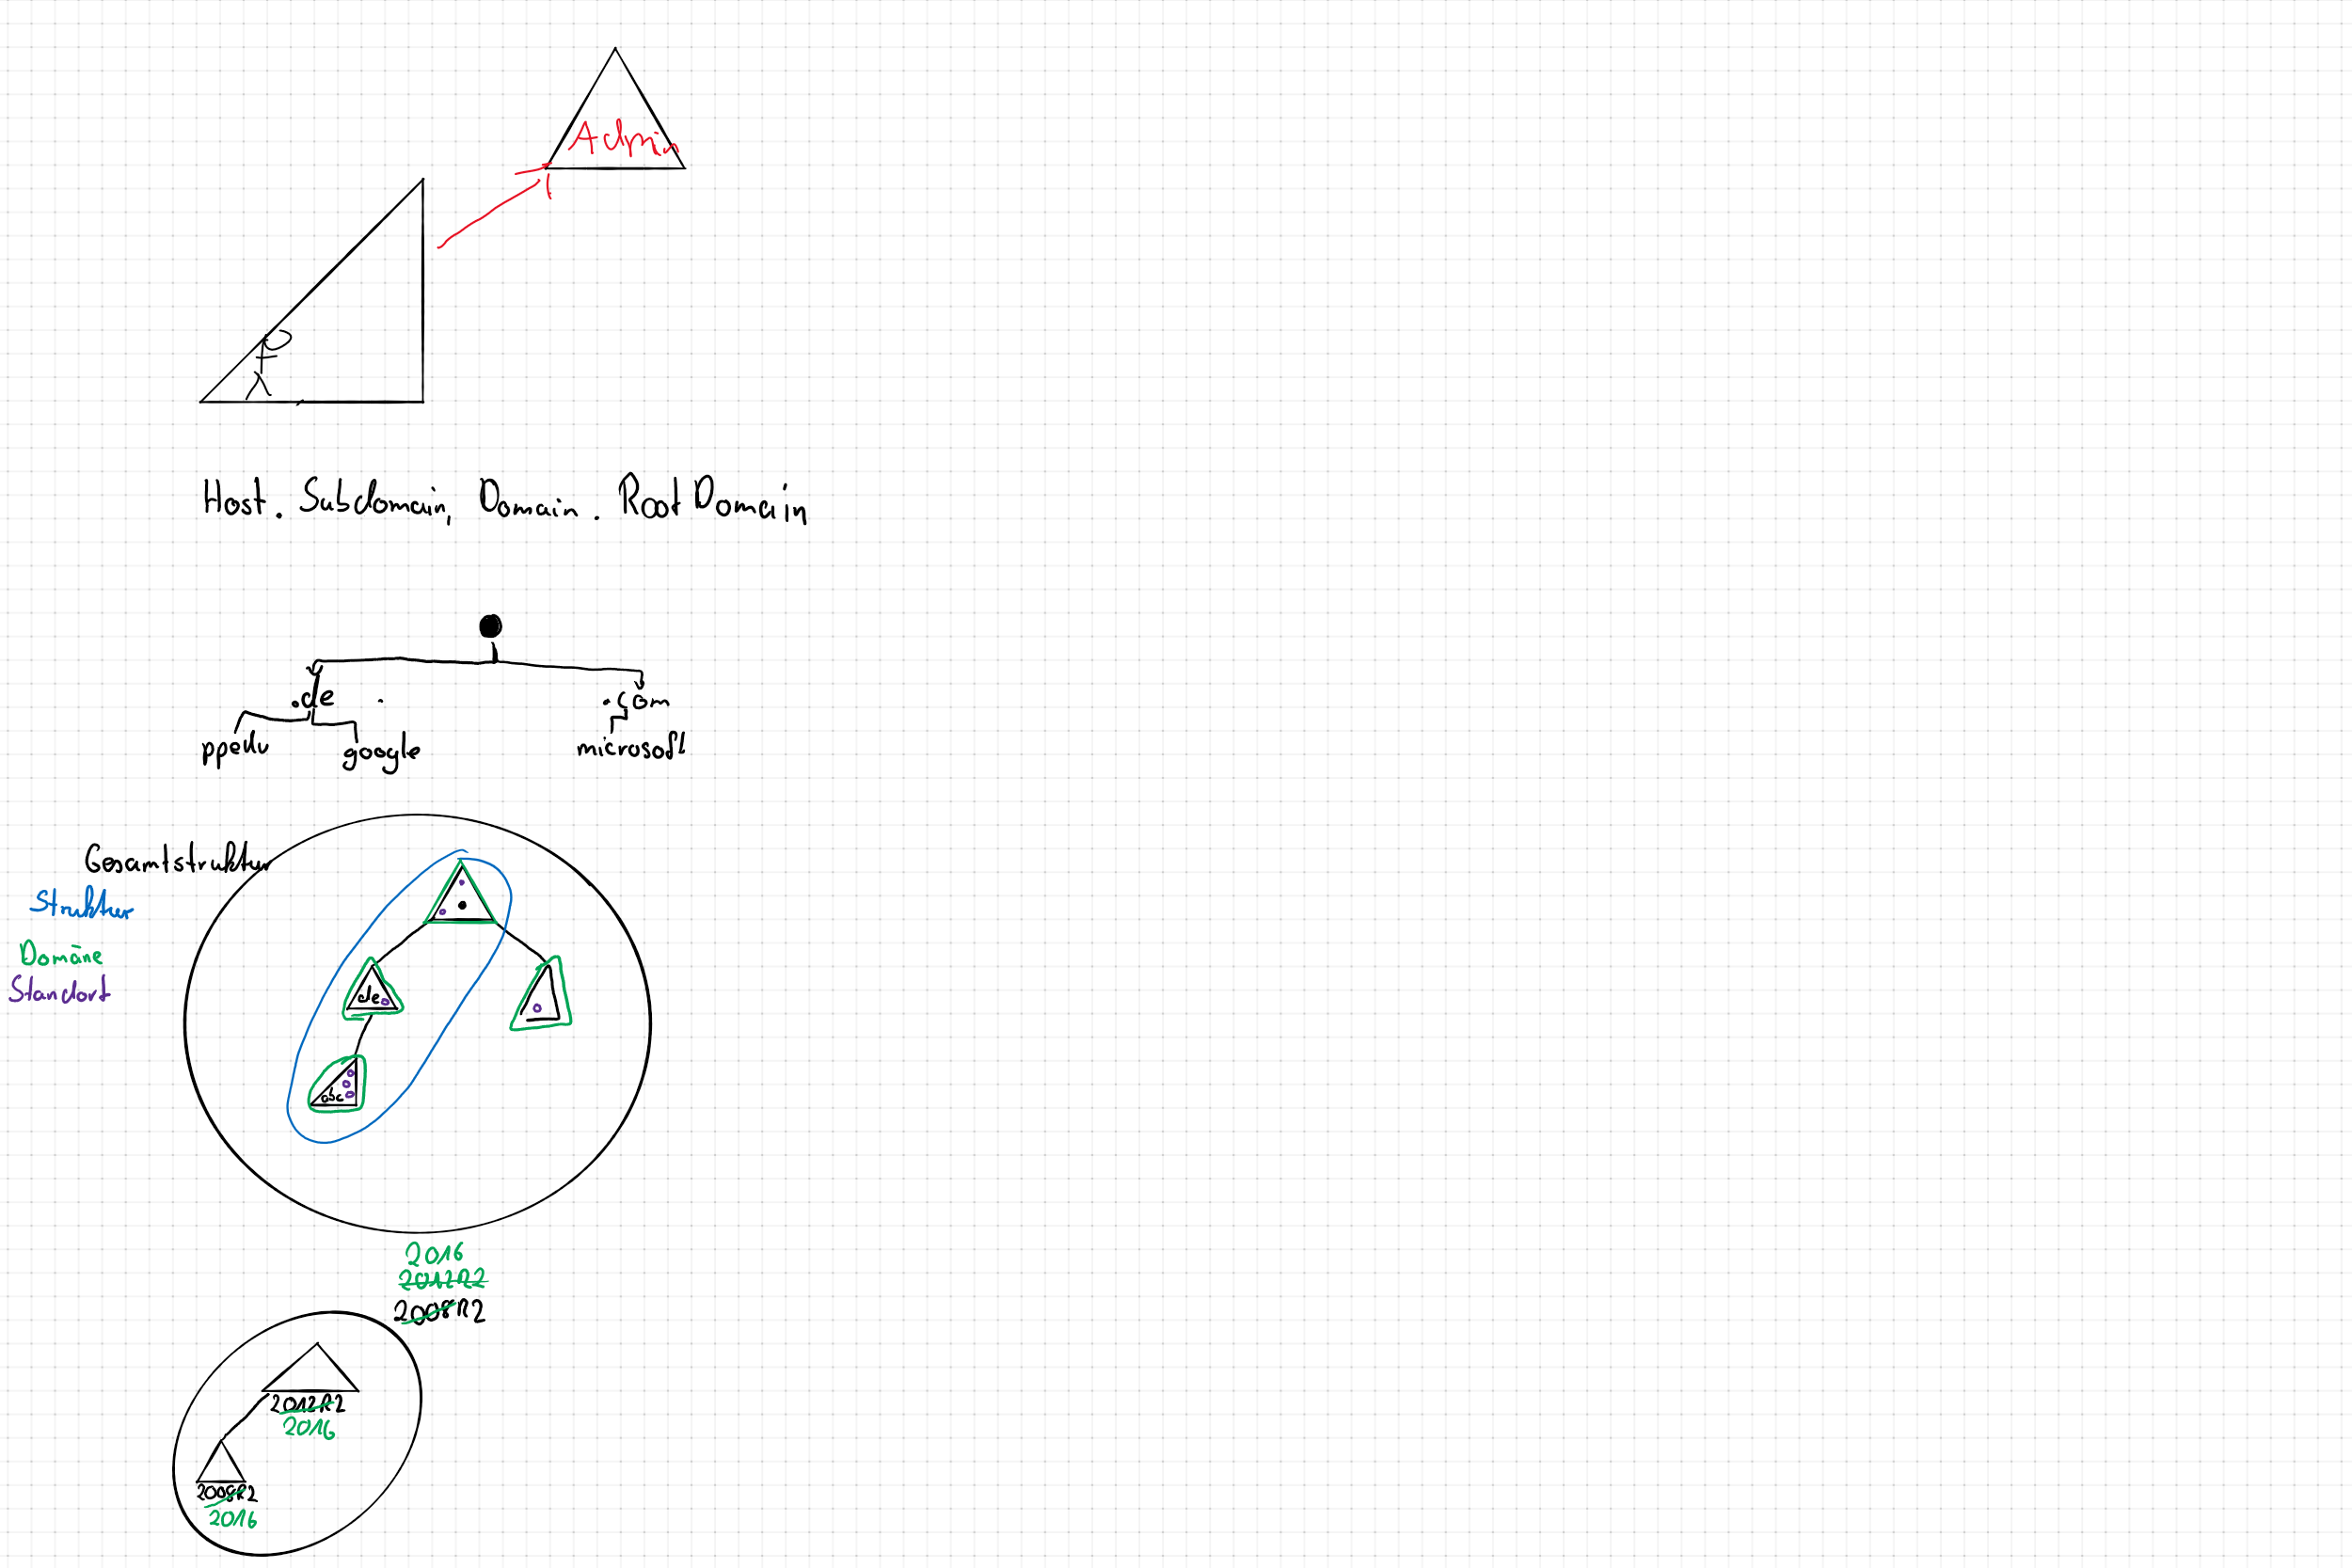 Admin
Host. Subdomain, Domain. RootDomain
.de .com
ppedv google microsoft
Gesamtstruktur
Struktur
Domäne
Standort
de
abc
2016
2012R2
2008R2
2012R2
2016
2008R2
2016